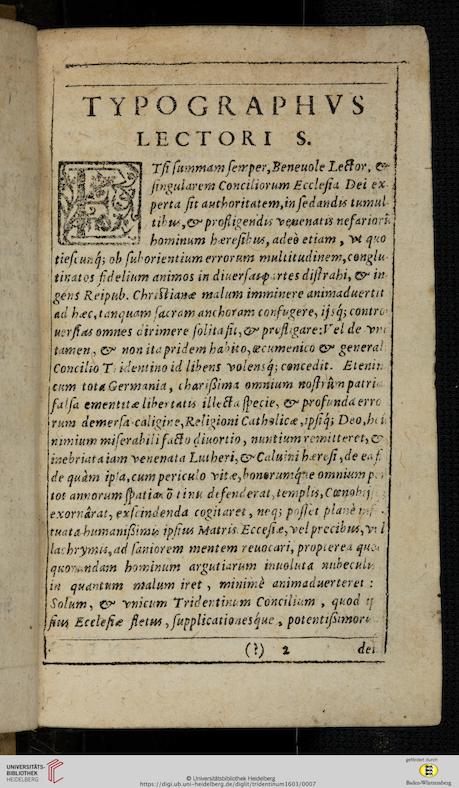 TYPOGRAPHVS
LECTORI S.
ETsi summam semper, Beneuole Lector, &
singularem Conciliorum Ecclesia Dei ex-
perta sit authoritatem, in sedandis tumul
tibus, & profligendis venenatis nefariorũ
hominum hæresibus, adeò etiam, vt quo
tiescunq; ob suborientium errorum multitudinem, conglu-
tinatos fidelium animos in diuersas partes distrahi, & in
gens Reipub. Christianæ malum imminere animaduertit
ad hæc, tanquam sacram anchoram confugere, ijsq; contro
uersias omnes dirimere solita sit, & profligare: Vel de vno
tamen, & non ita pridem habito, œcumenico & general
Concilio Tridentino id libens volensq; concedit. Etenim
cum tota Germania, charißima omnium nostrûm patria
falsa ementitæ libertatis illecta specie, & profunda erro
rum demersa caligine, Religioni Catholicæ, ipsiq; Deo,
nimium miserabili facto diuortio, nuntium remitteret, &
inebriata iam venenata Lutheri, & Caluini hæresi, de eaf
de quàm ipsa, cum periculo vitæ, bonorumque omnium
tot annorum spatia tinu defenderat, templis, Cœnobij
exornârat, exscindenda cogitaret, neq; posset planè
tuata humanißimis ipsius Matris Ecclesiæ, vel precibus, vel
lachrymis, ad saniorem mentem reuocari, propterea quo
quorundam hominum argutiarum inuoluta nubecul
in quantum malum iret, minimè animaduerteret:
Solum, & vnicum Tridentinum Concilium, quod
sius Ecclesiæ fletus, supplicationesque, potentißimor
(?) 2 dei
UNIVERSITÄTS-
BIBLIOTHEK
HEIDELBERG
© Universitätsbibliothek Heidelberg
https://digi.ub.uni-heidelberg.de/diglit/tridentinum1603/0007
gefördert durch
Baden-Württemberg